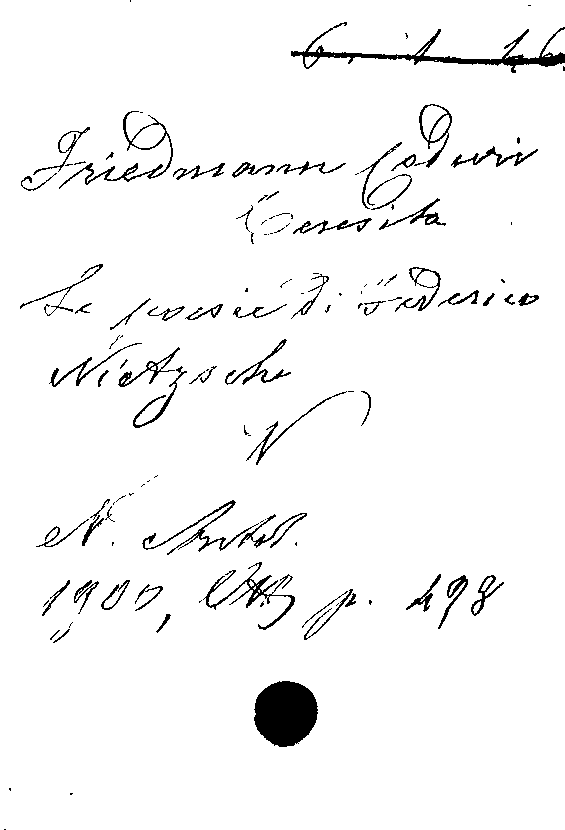 Friedmann Coduri
Teresita
Le poesie di Federico
Nietzsche
N
N. Antol.
1900, p. 498